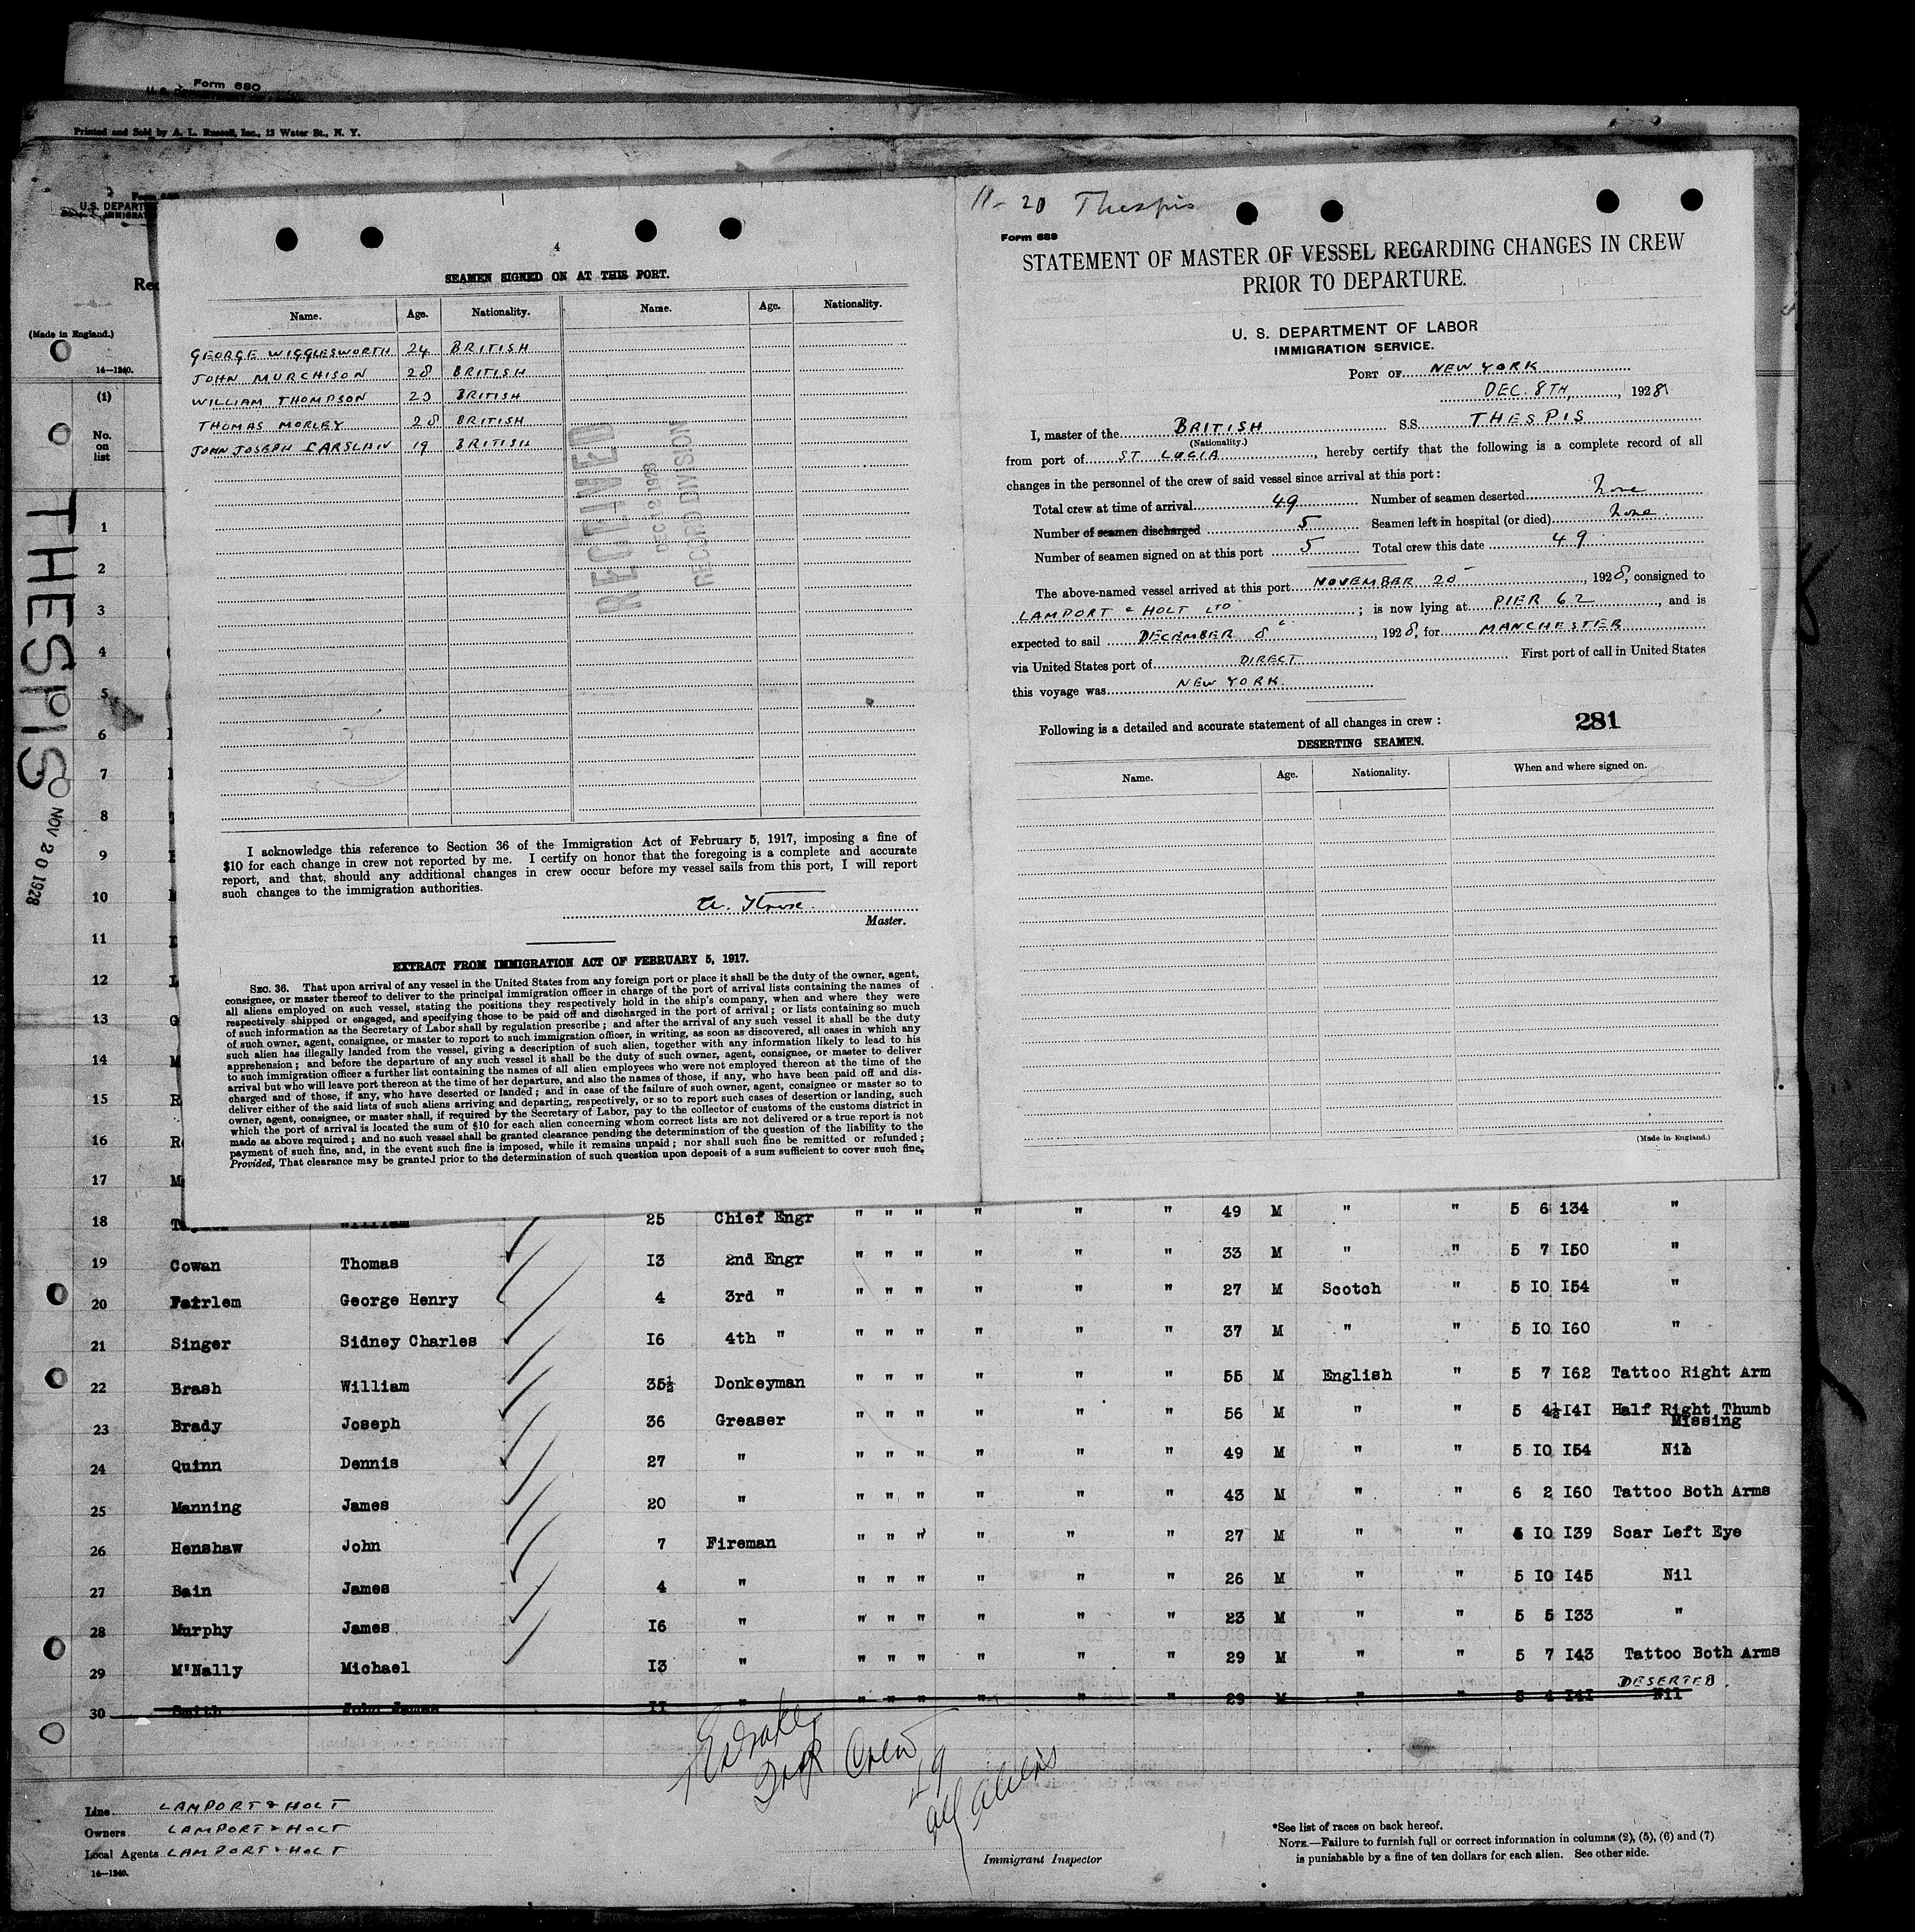 Form 680
Printed and Sold by A. L. Russell, Inc., 13 Water St., N. Y.
U.S. DEPART
IMMIGRAT
(Made in England.)
14—1240.
(1)
No.
on
list
THESPIS
NOV 20 1928
4
SEAMEN SIGNED ON AT THIS PORT.
Name. Age. Nationality. Name. Age. Nationality.
GEORGE WIGGLESWORTH 24 BRITISH
JOHN MURCHISON 28 BRITISH
WILLIAM THOMPSON BRITISH
THOMAS MORLEY 28 BRITISH
JOHN JOSEPH 19 BRITISH
RECEIVED
DEC 12 1928
RECORD DIVISION
I acknowledge this reference to Section 36 of the Immigration Act of February 5, 1917, imposing a fine of
$10 for each change in crew not reported by me. I certify on honor that the foregoing is a complete and accurate
report, and that, should any additional changes in crew occur before my vessel sails from this port, I will report
such changes to the immigration authorities.
Master.
EXTRACT FROM IMMIGRATION ACT OF FEBRUARY 5, 1917.
SEC. 36. That upon arrival of any vessel in the United States from any foreign port or place it shall be the duty of the owner, agent,
consignee, or master thereof to deliver to the principal immigration officer in charge of the port of arrival lists containing the names of
all aliens employed on such vessel, stating the positions they respectively hold in the ship's company, when and where they were
respectively shipped or engaged, and specifying those to be paid off and discharged in the port of arrival; or lists containing so much
of such information as the Secretary of Labor shall by regulation prescribe; and after the arrival of any such vessel it shall be the duty
of such owner, agent, consignee, or master to report to such immigration officer, in writing, as soon as discovered, all cases in which any
such alien has illegally landed from the vessel, giving a description of such alien, together with any information likely to lead to his
apprehension; and before the departure of any such vessel it shall be the duty of such owner, agent, consignee, or master to deliver
to such immigration officer a further list containing the names of all alien employees who were not employed thereon at the time of the
arrival but who will leave port thereon at the time of her departure, and also the names of those, if any, who have been paid off and dis-
charged and of those, if any, who have deserted or landed; and in case of the failure of such owner, agent, consignee or master so to
deliver either of the said lists of such aliens arriving and departing, respectively, or so to report such cases of desertion or landing, such
owner, agent, consignee, or master shall, if required by the Secretary of Labor, pay to the collector of customs of the customs district in
which the port of arrival is located the sum of $10 for each alien concerning whom correct lists are not delivered or a true report is not
made as above required; and no such vessel shall be granted clearance pending the determination of the question of the liability to the
payment of such fine, and, in the event such fine is imposed, while it remains unpaid; nor shall such fine be remitted or refunded;
Provided, That clearance may be granted prior to the determination of such question upon deposit of a sum sufficient to cover such fine.
11-20 Thespis
Form 689
STATEMENT OF MASTER OF VESSEL REGARDING CHANGES IN CREW
PRIOR TO DEPARTURE.
U. S. DEPARTMENT OF LABOR
IMMIGRATION SERVICE.
PORT OF NEW YORK
DEC. 8TH, 1928
I, master of the BRITISH S.S. THESPIS
(Nationality.)
from port of ST LUCIA, hereby certify that the following is a complete record of all
changes in the personnel of the crew of said vessel since arrival at this port:
Total crew at time of arrival 49 Number of seamen deserted None
Number of seamen discharged 5 Seamen left in hospital (or died) None
Number of seamen signed on at this port 5 Total crew this date 49
The above-named vessel arrived at this port NOVEMBER 20, 1928, consigned to
LAMPORT & HOLT LTD; is now lying at PIER 62, and is
expected to sail DECEMBER 8, 1928, for MANCHESTER
via United States port of DIRECT First port of call in United States
this voyage was NEW YORK.
Following is a detailed and accurate statement of all changes in crew: 281
DESERTING SEAMEN.
Name. Age. Nationality. When and where signed on.
(Made in England.)
1
2
3
4
5
6
7
8
9
10
11
12
13
14
15
16
17
18 William 25 Chief Engr " " " " " " 49 M " " 5 6 134 "
19 Cowan Thomas 13 2nd Engr " " " " " " 33 M " " 5 7 150 "
20 Fairlem George Henry 4 3rd " " " " " " " 27 M Scotch " 5 10 154 "
21 Singer Sidney Charles 16 4th " " " " " " " 37 M " " 5 10 160 "
22 Brash William 35½ Donkeyman " " " " " " 55 M English " 5 7 162 Tattoo Right Arm
23 Brady Joseph 36 Greaser " " " " " " 56 M " " 5 4½ 141 Half Right Thumb Missing
24 Quinn Dennis 27 " " " " " " " 49 M " " 5 10 154 Nil
25 Manning James 20 " " " " " " " 43 M " " 6 2 160 Tattoo Both Arms
26 Henshaw John 7 Fireman " " " " " " 27 M " " 5 10 139 Scar Left Eye
27 Bain James 4 " " " " " " " 26 M " " 5 10 145 Nil
28 Murphy James 16 " " " " " " " 23 M " " 5 5 133 "
29 M'Nally Michael 13 " " " " " " " 29 M " " 5 7 143 Tattoo Both Arms
DESERTED.
30 Smith John James 11 " " " " " " " 29 M " " 5 4 141 Nil
Crew 49
all aliens
Line LAMPORT & HOLT
Owners LAMPORT & HOLT
Local Agents LAMPORT & HOLT
14—1240.
Immigrant Inspector
*See list of races on back hereof.
NOTE.—Failure to furnish full or correct information in columns (2), (5), (6) and (7)
is punishable by a fine of ten dollars for each alien. See other side.